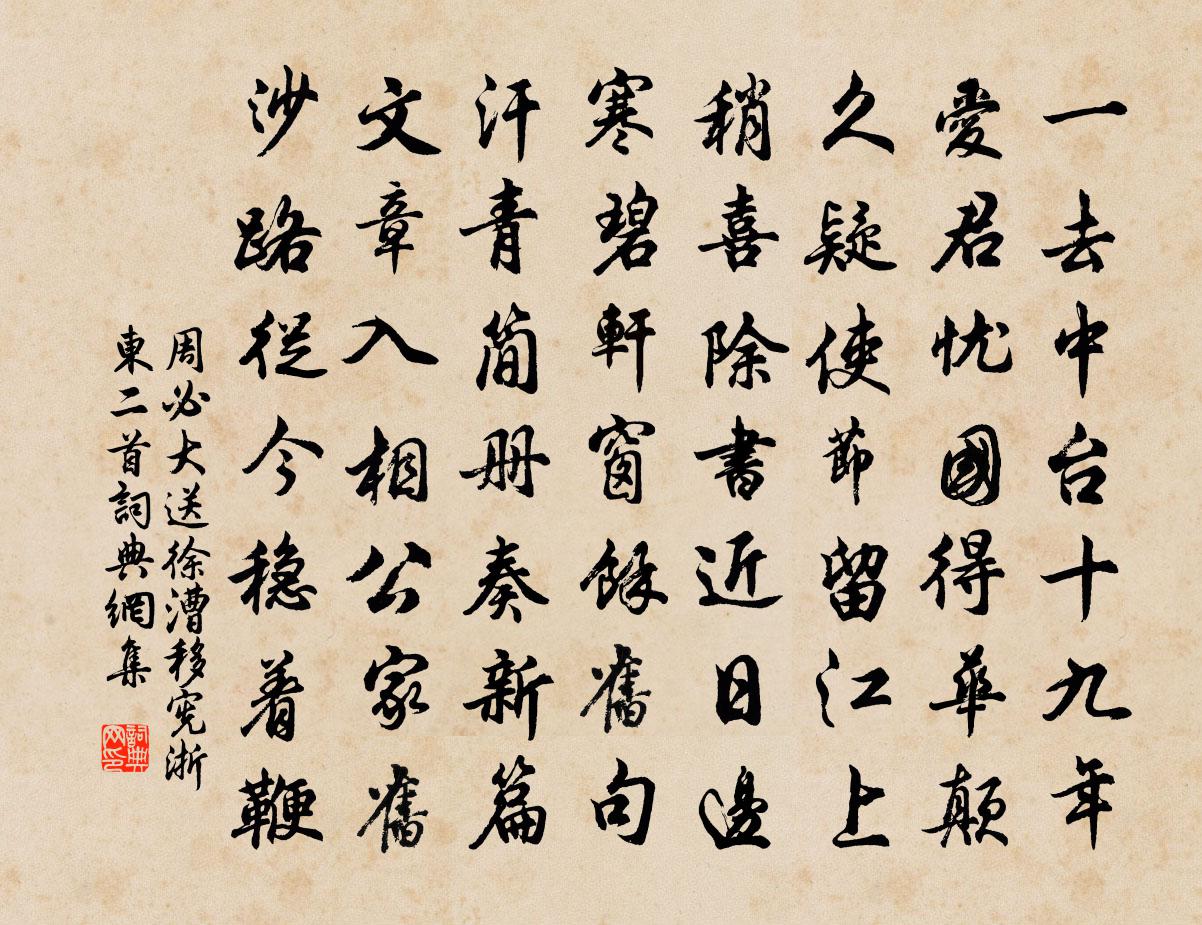 一去中台十九年
愛君忧國得華顛
久疑使節留江上
稍喜除書近日邊
寒碧軒窗餘舊句
汗青簡册奏新篇
文章入相公家舊
沙路從今穏着鞭
周必大送徐漕移宪浙
東二首詞典網集
詞典
网印